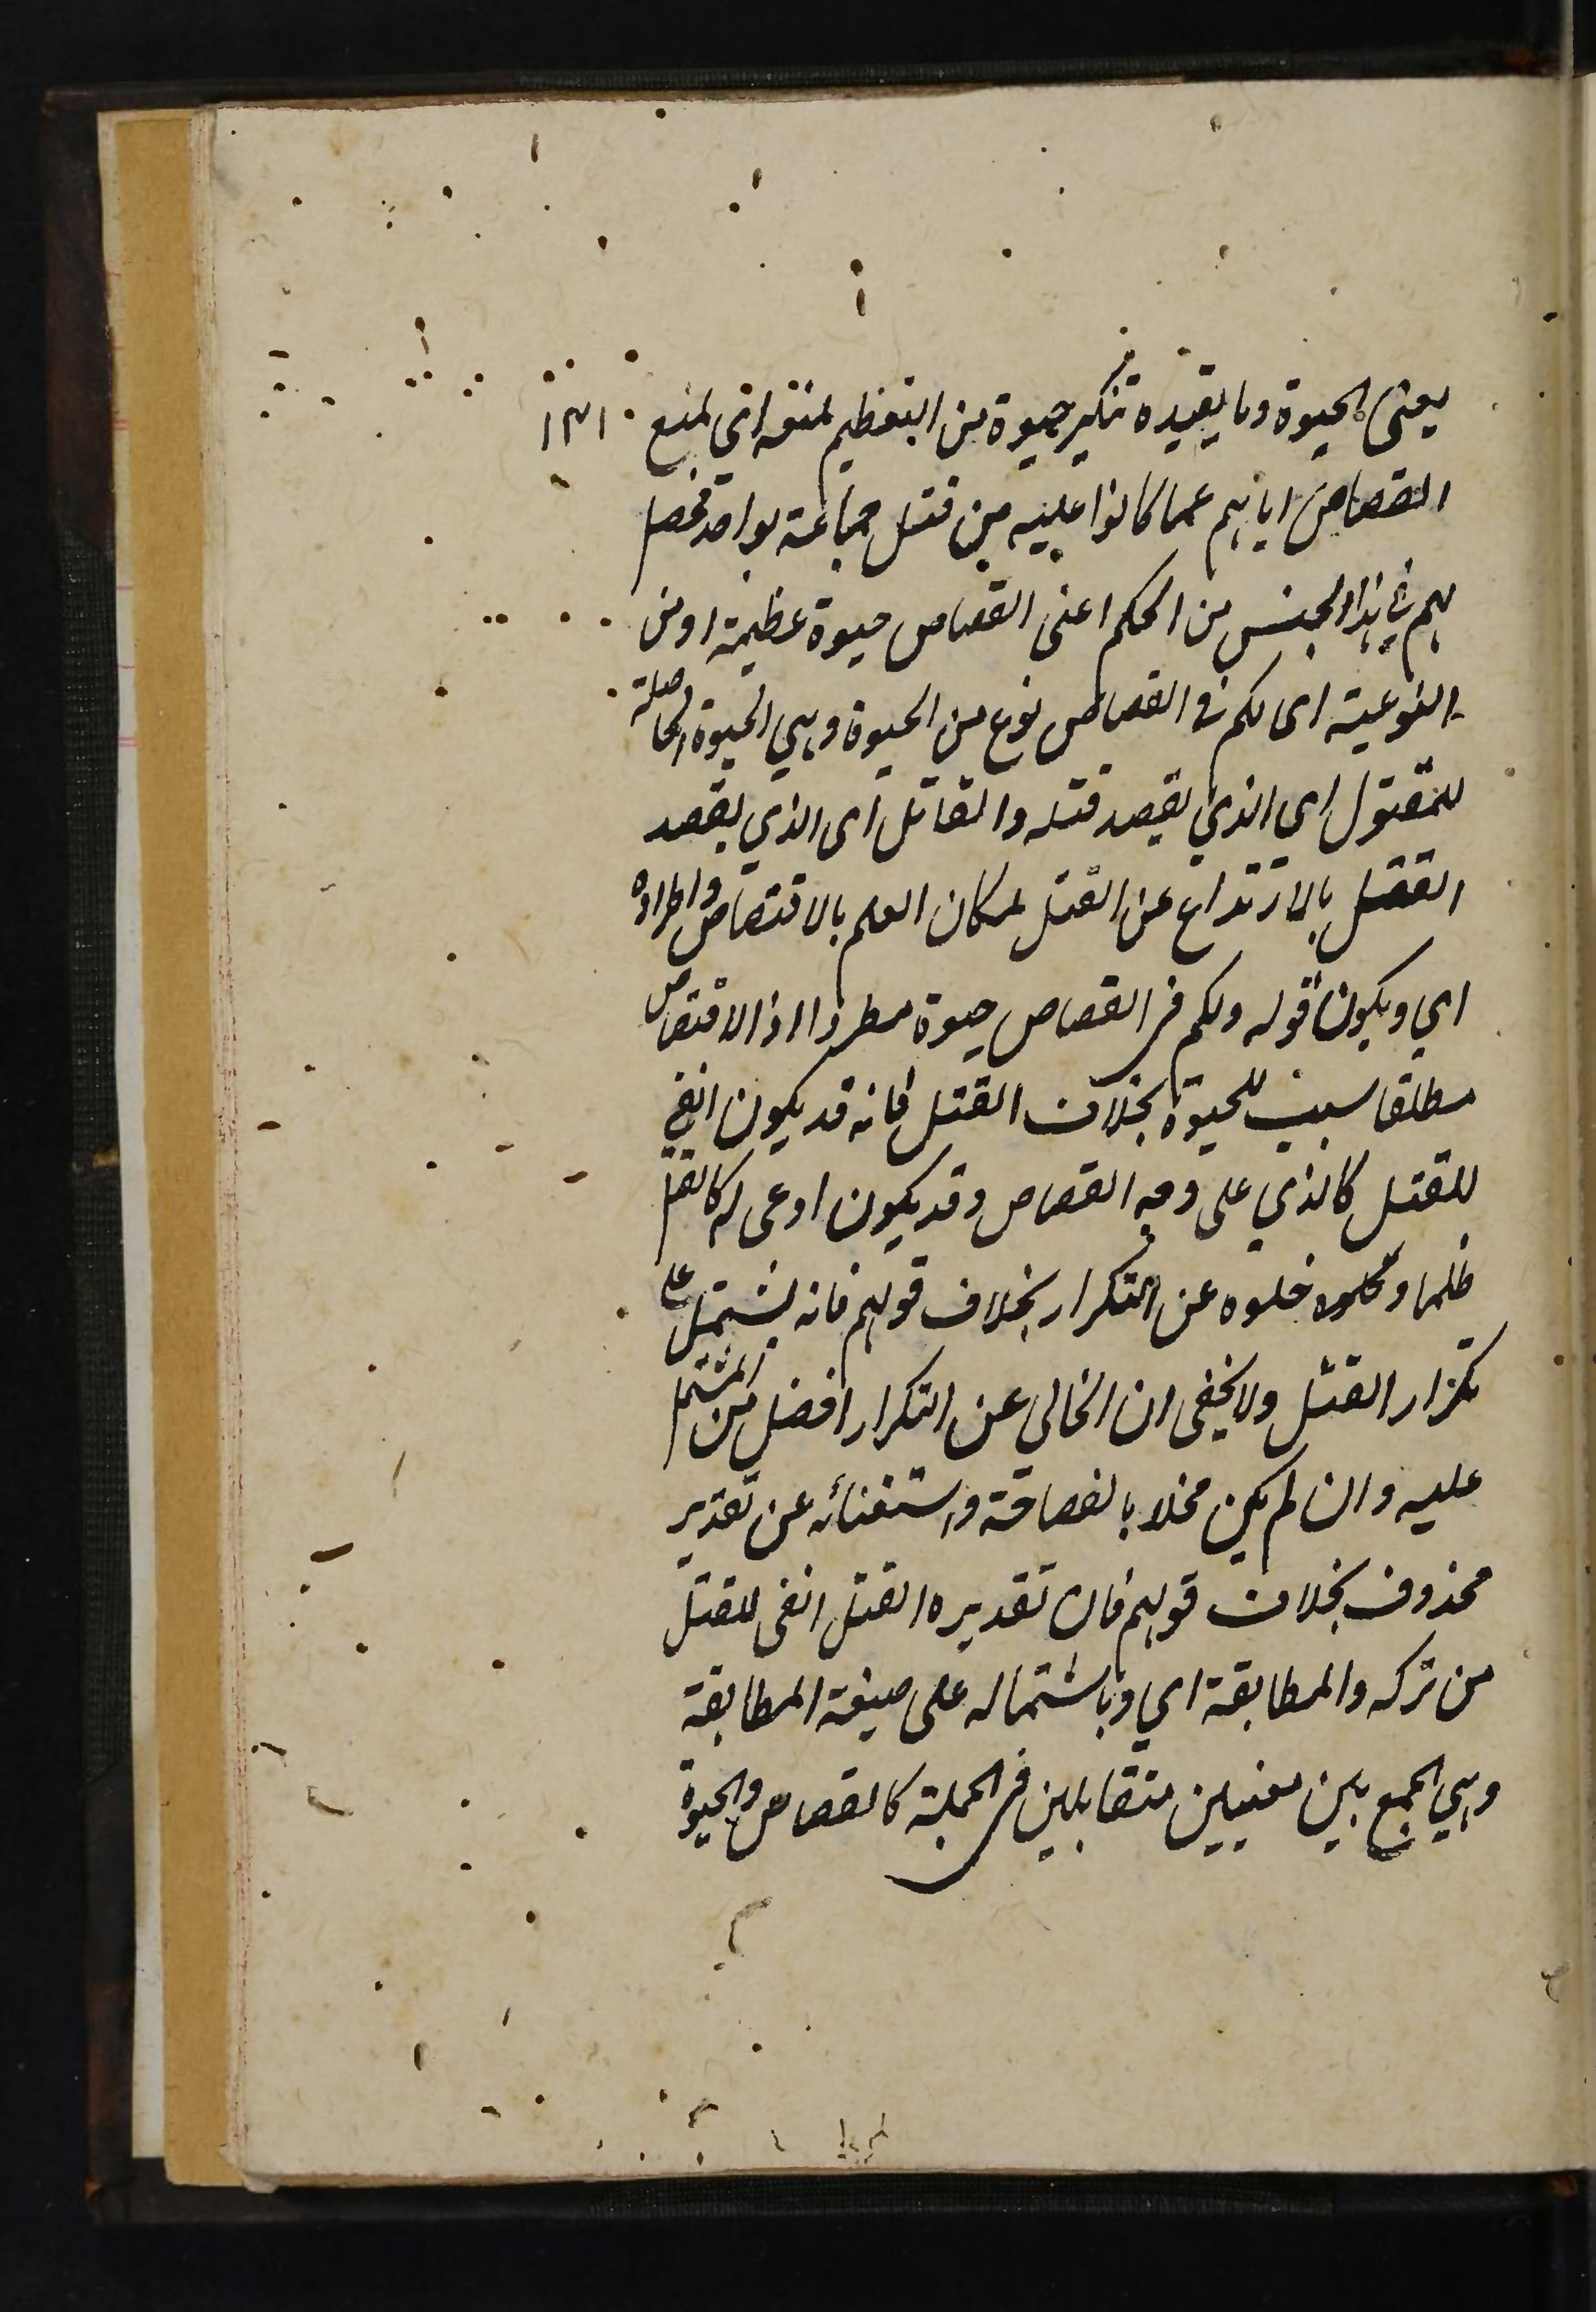 يعنى الحيوة وما يفيده تنكير حيوة من التعظيم لمنعه اي لمنع ١٣١
القصاص اياهم عما كانوا عليه من قتل جماعة بواحد فحصل
لهم في هذا الجنس من الحكم اعنى القصاص حيوة عظيمة او من
النوعية اى لكم فى القصاص نوع من الحيوة وهي الحيوة الحاصلة
للمقتول اى الذي يقصد قتله والقاتل اى الذي يقصد
القتل بالارتداع عن القتل لمكان العلم بالاقتصاص واطراده
اي ويكون قوله ولكم فى القصاص حيوة مطردا اذ الاقتصاص
مطلقا سبب للحيوة بخلاف القتل فانه قد يكون انفى
للقتل كالذي على وجه القصاص وقد يكون ادعى له كالقتل
ظلما وخلوه عن التكرار بخلاف قولهم فانه يشتمل على
تكرار القتل ولا يخفى ان الخالي عن التكرار افضل من المشتمل
عليه وان لم يكن مخلا بالفصاحة واستغنائه عن تقدير
محذوف بخلاف قولهم فان تقديره القتل انفى للقتل
من تركه والمطابقة اي وباشتماله على صيغة المطابقة
وهي الجمع بين معنيين متقابلين فى الجملة كالقصاص والحيوة